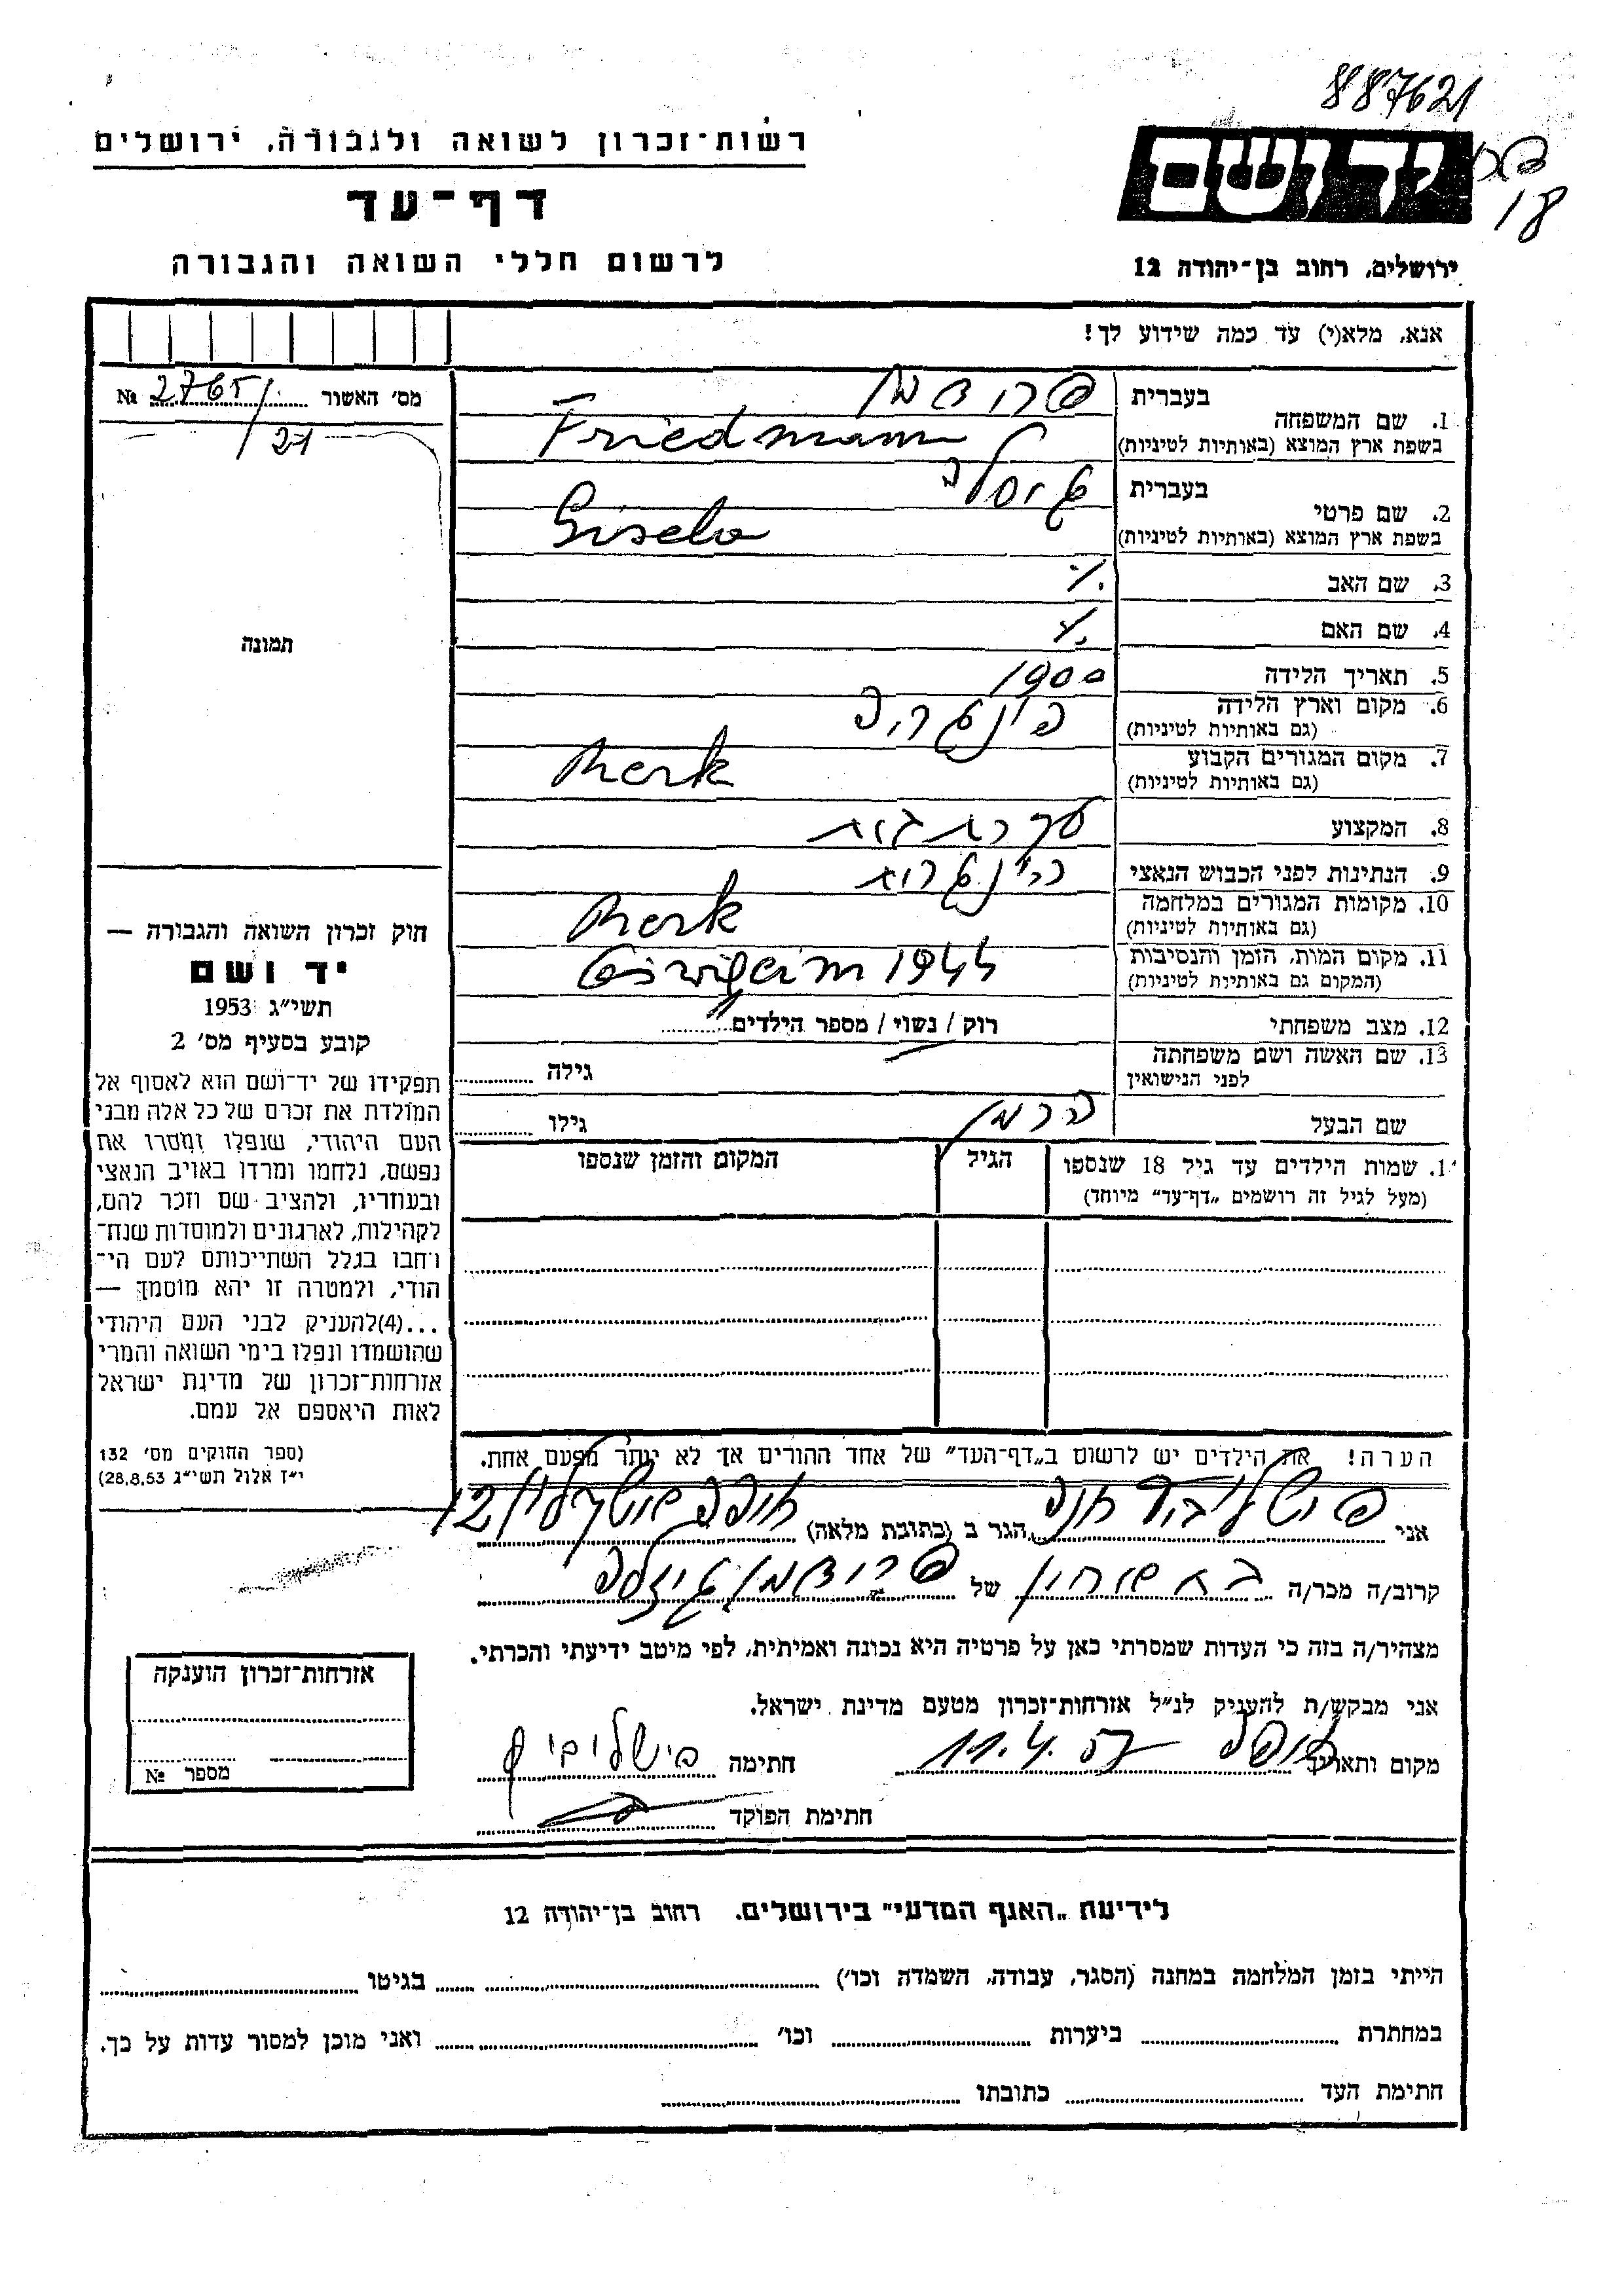 887621
יד ושם
18
רשות־זכרון לשואה ולגבורה, ירושלים
דף־עד
לרשום חללי השואה והגבורה
ירושלים, רחוב בן־יהודה 12
אנא, מלא(י) עד כמה שידוע לך!
מס׳ האשור № 2765/
21
תמונה
בעברית פרידמן
1. שם המשפחה
בשפת ארץ המוצא (באותיות לטיניות) Friedmann
בעברית גיזלה
2. שם פרטי
בשפת ארץ המוצא (באותיות לטיניות) Gisela
3. שם האב
4. שם האם
5. תאריך הלידה 1900
6. מקום וארץ הלידה
(גם באותיות לטיניות) הונגריה
7. מקום המגורים הקבוע
(גם באותיות לטיניות) Merk
8. המקצוע עקרת בית
9. הנתינות לפני הכבוש הנאצי הונגרית
10. מקומות המגורים במלחמה
(גם באותיות לטיניות) Merk
11. מקום המות, הזמן והנסיבות
(המקום גם באותיות לטיניות) 1944
12. מצב משפחתי רוק / נשוי / מספר הילדים
13. שם האשה ושם משפחתה
לפני הנישואין גילה
שם הבעל הרמן גילו
1. שמות הילדים עד גיל 18 שנספו
(מעל לגיל זה רושמים „דף־עד” מיוחד)
הגיל
המקום והזמן שנספו
הערה! את הילדים יש לרשום ב„דף־העד” של אחד ההורים אך לא יותר מפעם אחת.
חוק זכרון השואה והגבורה —
יד ושם
תשי״ג 1953
קובע בסעיף מס׳ 2
תפקידו של יד־ושם הוא לאסוף אל
המולדת את זכרם של כל אלה מבני
העם היהודי, שנפלו ומסרו את
נפשם, נלחמו ומרדו באויב הנאצי
ובעוזריו, ולהציב שם וזכר להם,
לקהילות, לארגונים ולמוסדות שנח־
רבו בגלל השתייכותם לעם הי־
הודי, ולמטרה זו יהא מוסמך —
...(4)להעניק לבני העם היהודי
שהושמדו ונפלו בימי השואה והמרי
אזרחות־זכרון של מדינת ישראל
לאות היאספם אל עמם.
(ספר החוקים מס׳ 132
י״ז אלול תשי״ג 28,8,53)
אני חנה הגר ב (כתובת מלאה) חיפה 12
קרוב/ה מכר/ה של פרידמן גיזלה
מצהיר/ה בזה כי העדות שמסרתי כאן על פרטיה היא נכונה ואמיתית, לפי מיטב ידיעתי והכרתי.
אני מבקש/ת להעניק לנ״ל אזרחות־זכרון מטעם מדינת ישראל.
מקום ותאריך חיפה 11.4.57 חתימה
חתימת הפוקד
אזרחות־זכרון הוענקה
מספר №
לידיעת „האגף המדעי” בירושלים. רחוב בן־יהודה 12
הייתי בזמן המלחמה במחנה (הסגר, עבודה, השמדה וכו׳) בגיטו
במחתרת ביערות וכו׳ ואני מוכן למסור עדות על כך.
חתימת העד כתובתו